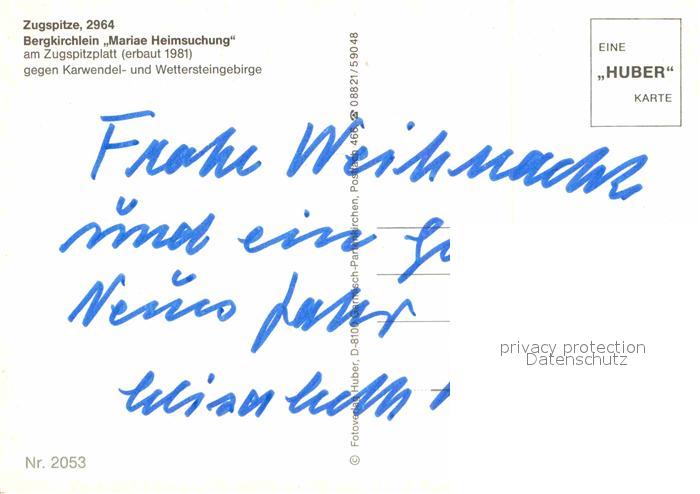 Zugspitze, 2964
Bergkirchlein „Mariae Heimsuchung“
am Zugspitzplatt (erbaut 1981)
gegen Karwendel- und Wettersteingebirge
EINE
„HUBER“
KARTE
Frohe Weihnacht
und ein Gu
Neues Jahr
© Fotoverlag Huber, D-8100 Garmisch-Partenkirchen, Postfach 466, ☎ 08821/59048
privacy protection
Datenschutz
Nr. 2053